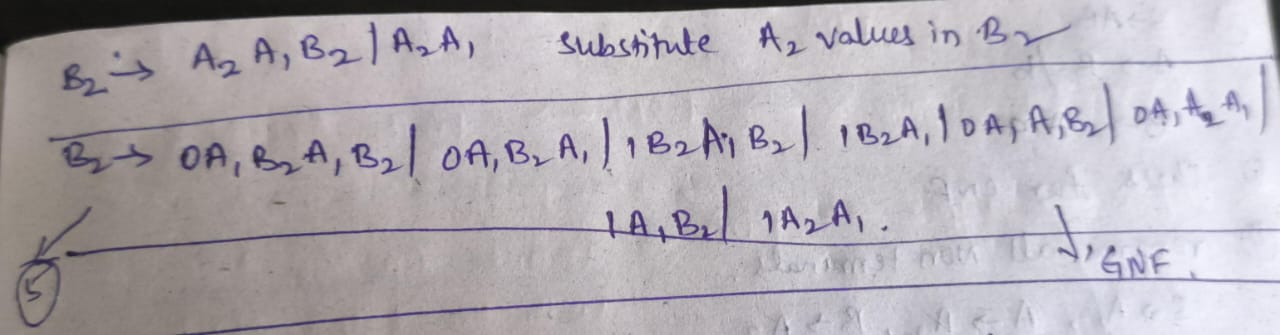 B₂ → A₂ A₁ B₂ | A₂ A₁ substitute A₂ values in B₂
B₂ → 0A₁ B₂ A₁ B₂ | 0A₁ B₂ A₁ | 1 B₂ A₁ B₂ | 1B₂ A₁ | 0A₁ A₁ B₂ | 0A₁ A₂ A₁ |
1A₁ B₂ | 1A₂ A₁ .
GNF.
5